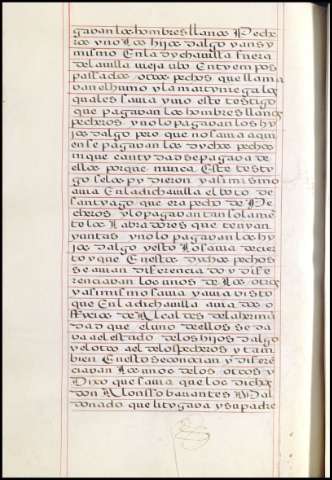 gavan los hombres llanos Peche
ros y no los hijos dalgo y ansy
mismo En la dycha villa fuera
de la villa vieja ubo En tyempos
passados otros pechos que llama
van el humo y la martyniega los
quales savia y vio este testigo
que pagavan los hombres llanos
pecheros y no lo pagavan los hy
jos dalgo pero que no savia a quy
en se pagavan los dychos pechos
ni que cantydad se pagava de
ellos porque nunca Este testy
go se los pydieron y asimismo
avia En la dicha villa el boto de
santyago que era pecho de Pe
cheros y lo pagavan tan solame
te los labradores que tenyan
yuntas y no lo pagavan los hy
jos dalgo y esto lo savia de cier
to y que En estos dichos pechos
se avian diferenciado y dife
renciavan los unos de los otros
y asimismo savia y avia visto
que En la dicha villa avia dos o
ffycios de Alcaldes de la hermā
dad que el uno de ellos se da
va a el estado de los hijos dalgo
y el otro a el de los pecheros y tam
bien En esto se conocian y diferē
ciavan los unos de los otros y
Dixo que savia que los dichos
don Alonsso
donado que litygava y su padre